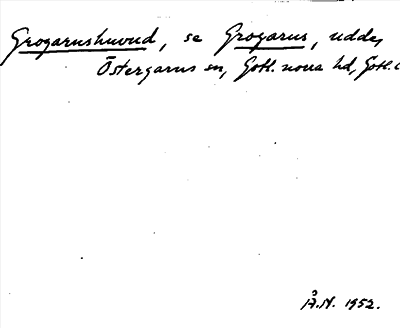 Grogarnshuvud, se Grogarns, udde,
Östergarns sn, Gotl. norra hd, Gotl. l
Å.N. 1952.